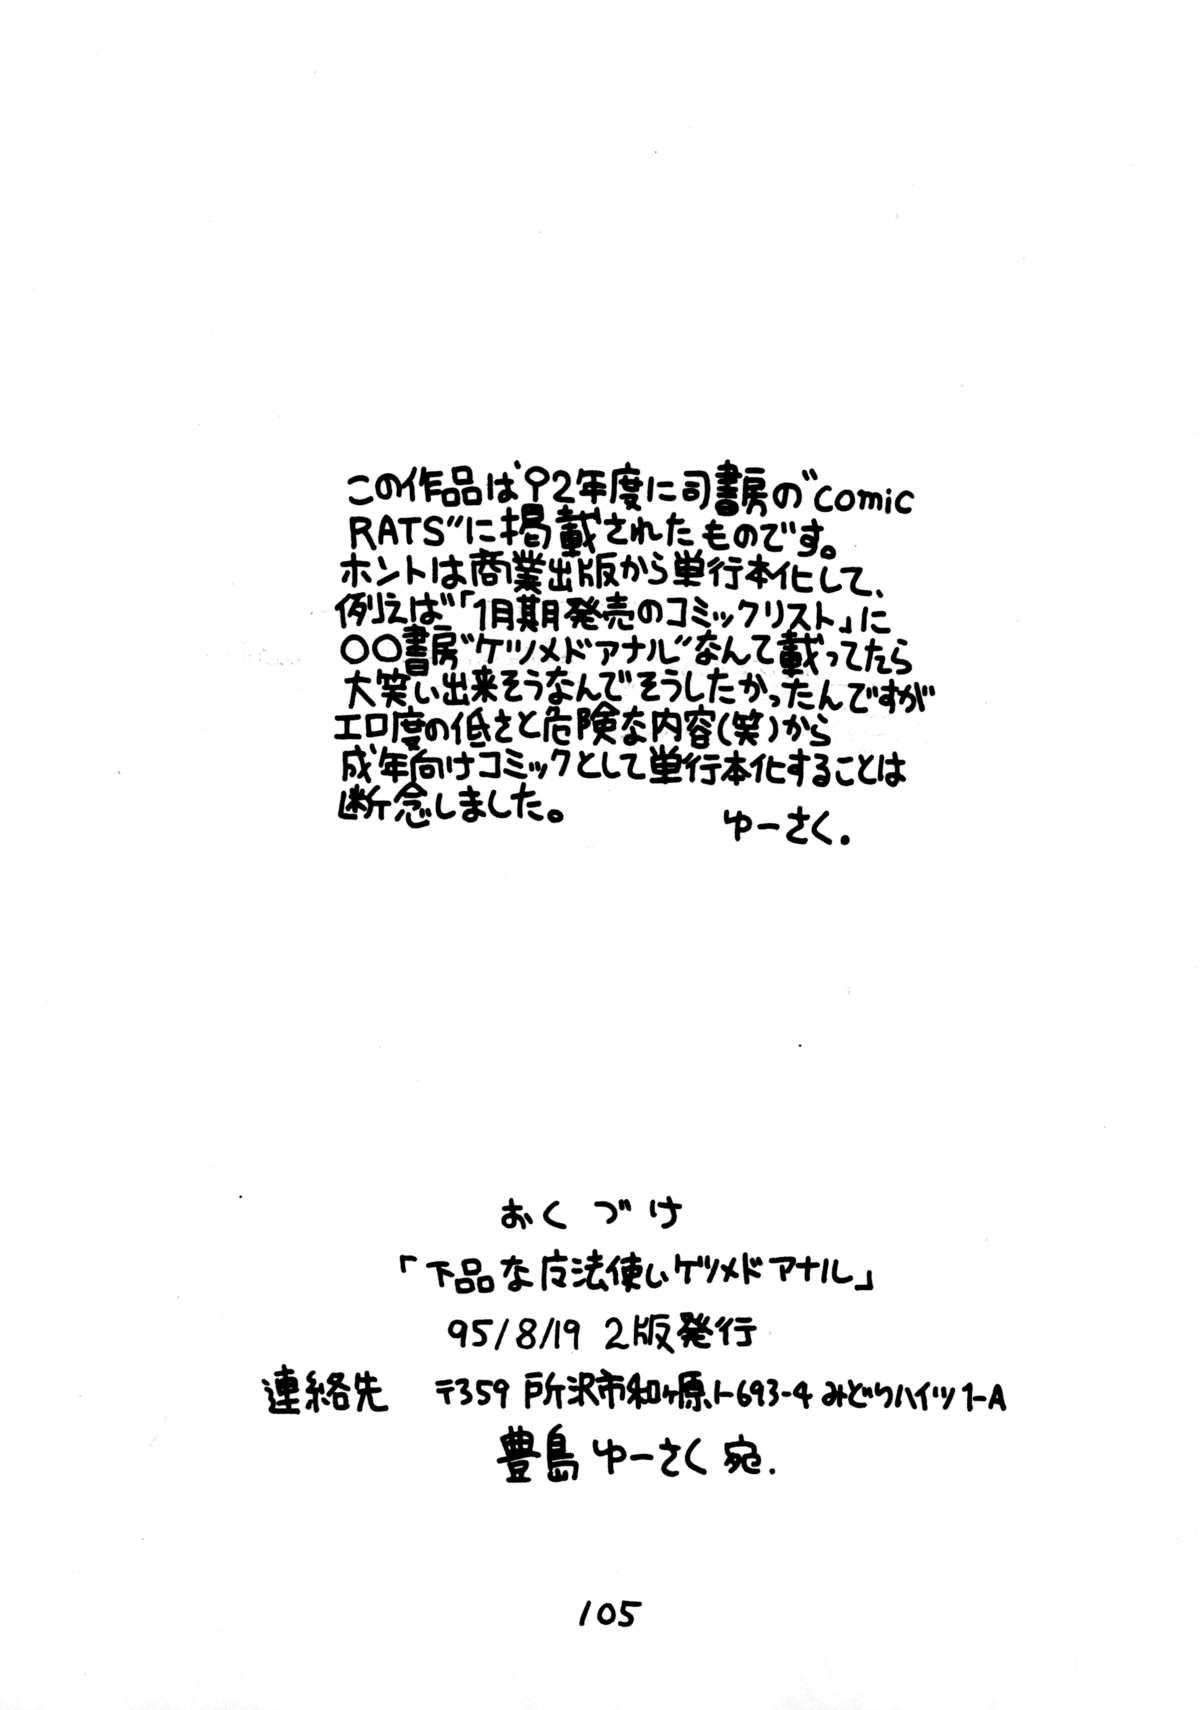 この作品は'92年度に司書房の"comic
RATS"に掲載されたものです。
ホントは商業出版から単行本化して、
例えば「1月期発売のコミックリスト」に
○○書房"ケツメドアナル"なんて載ってたら
大笑い出来そうなんでそうしたかったんですが
エロ度の低さと危険な内容(笑)から
成年向けコミックとして単行本化することは
断念しました。
ゆーさく.
おくづけ
「下品な広法使いケツメドアナル」
95/8/19 2版発行
連絡先 〒359 所沢市和ヶ原1-693-4 みどりハイツ1-A
豊島ゆーさく宛.
105